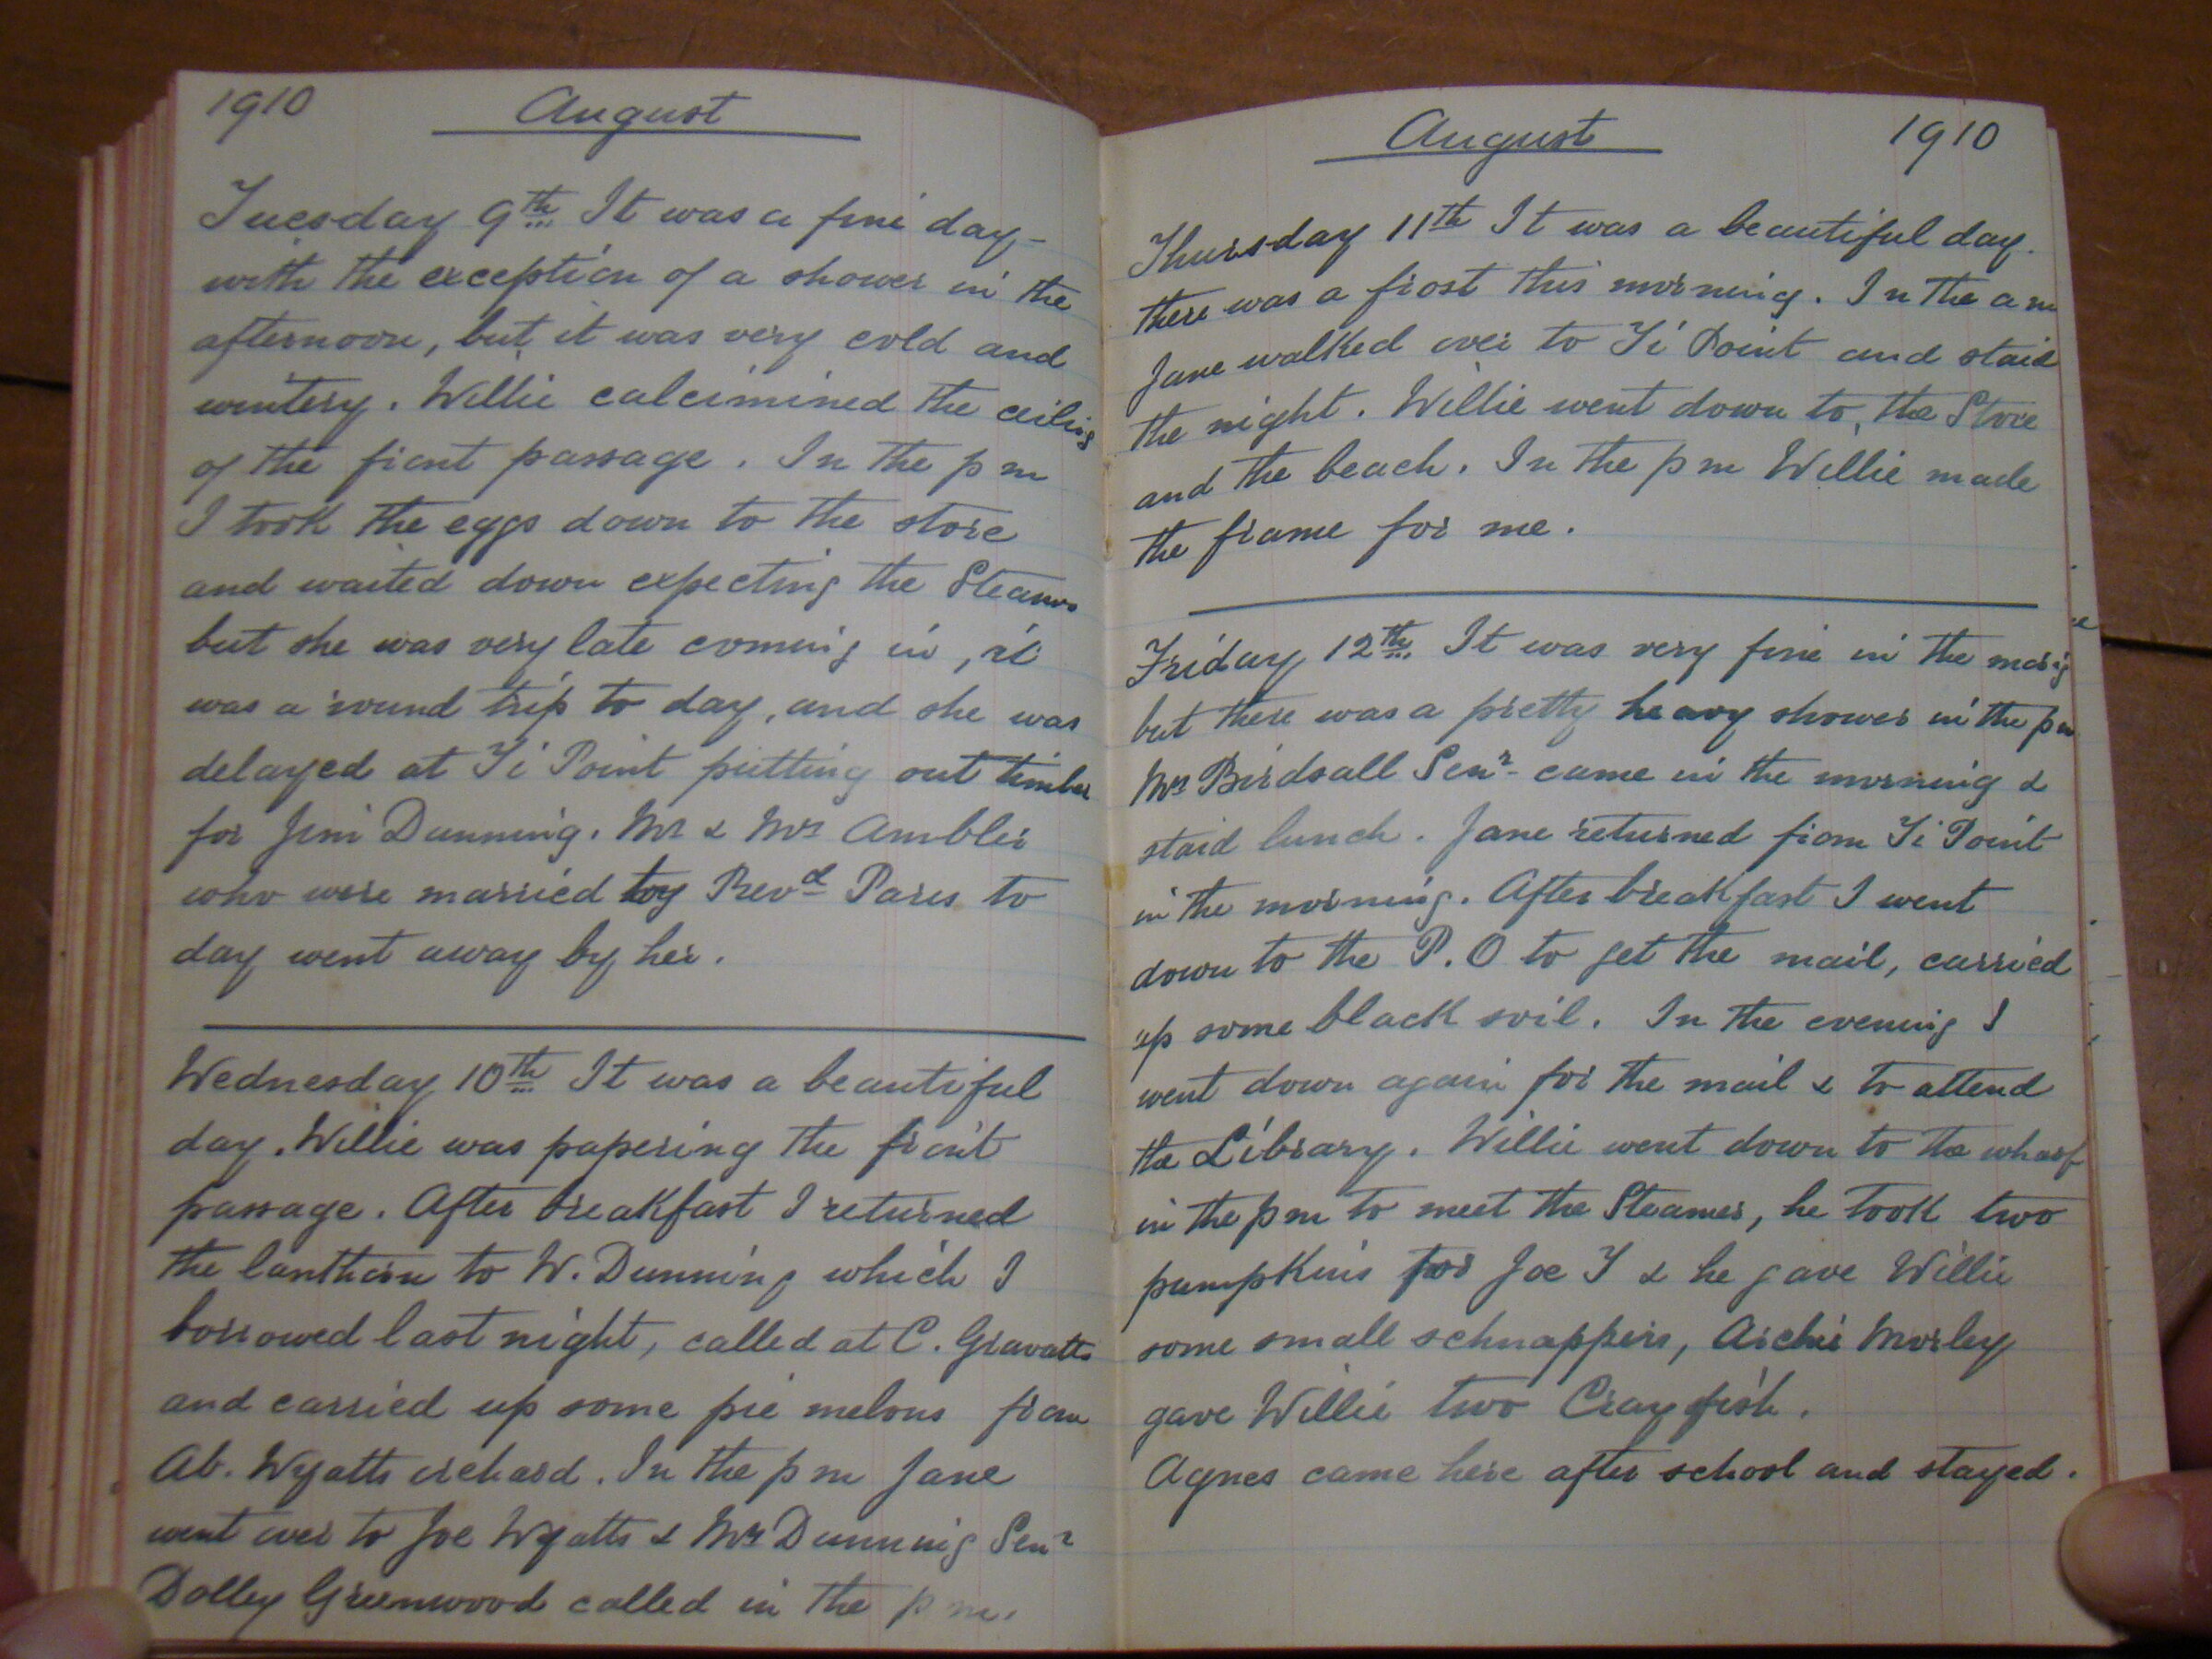 1910 August
Tuesday 9th It was a fine day
with the exception of a shower in the
afternoon, but it was very cold and
wintery. Willie calcimined the ceiling
of the front passage. In the p m
I took the eggs down to the store
and waited down expecting the Steamer
but she was very late coming in, it
was a round trip to day, and she was
delayed at Ti Point putting out timber
for Jim Dunning. Mr & Mrs Ambler
who were married by Revd Paris to
day went away by her.
Wednesday 10th It was a beautiful
day. Willie was papering the front
passage. After breakfast I returned
the lanthorn to W. Dunning which I
borrowed last night, called at C. Gravatts
and carried up some pie melons from
Ab. Wyatts orchard. In the p m Jane
went over to Joe Wyatts & Mrs Dunning Senr
Dolley Greenwood called in the p m.
August 1910
Thursday 11th It was a beautiful day.
there was a frost this morning. In the a m
Jane walked over to Ti Point and staid
the night. Willie went down to, the Store
and the beach. In the p m Willie made
the frame for me.
Friday 12th. It was very fine in the morng
but there was a pretty heavy shower in the p m
Mrs Birdsall Senr - came in the morning &
staid lunch. Jane returned from Ti Point
in the morning. After breakfast I went
down to the P. O to get the mail, carried
up some black soil. In the evening I
went down again for the mail & to attend
the Library. Willie went down to the wharf
in the p m to meet the Steamer, he took two
pumpkins for Joe T & he gave Willie
some small schnappers, Archie Morley
gave Willie two Crayfish.
Agnes came here after school and stayed.